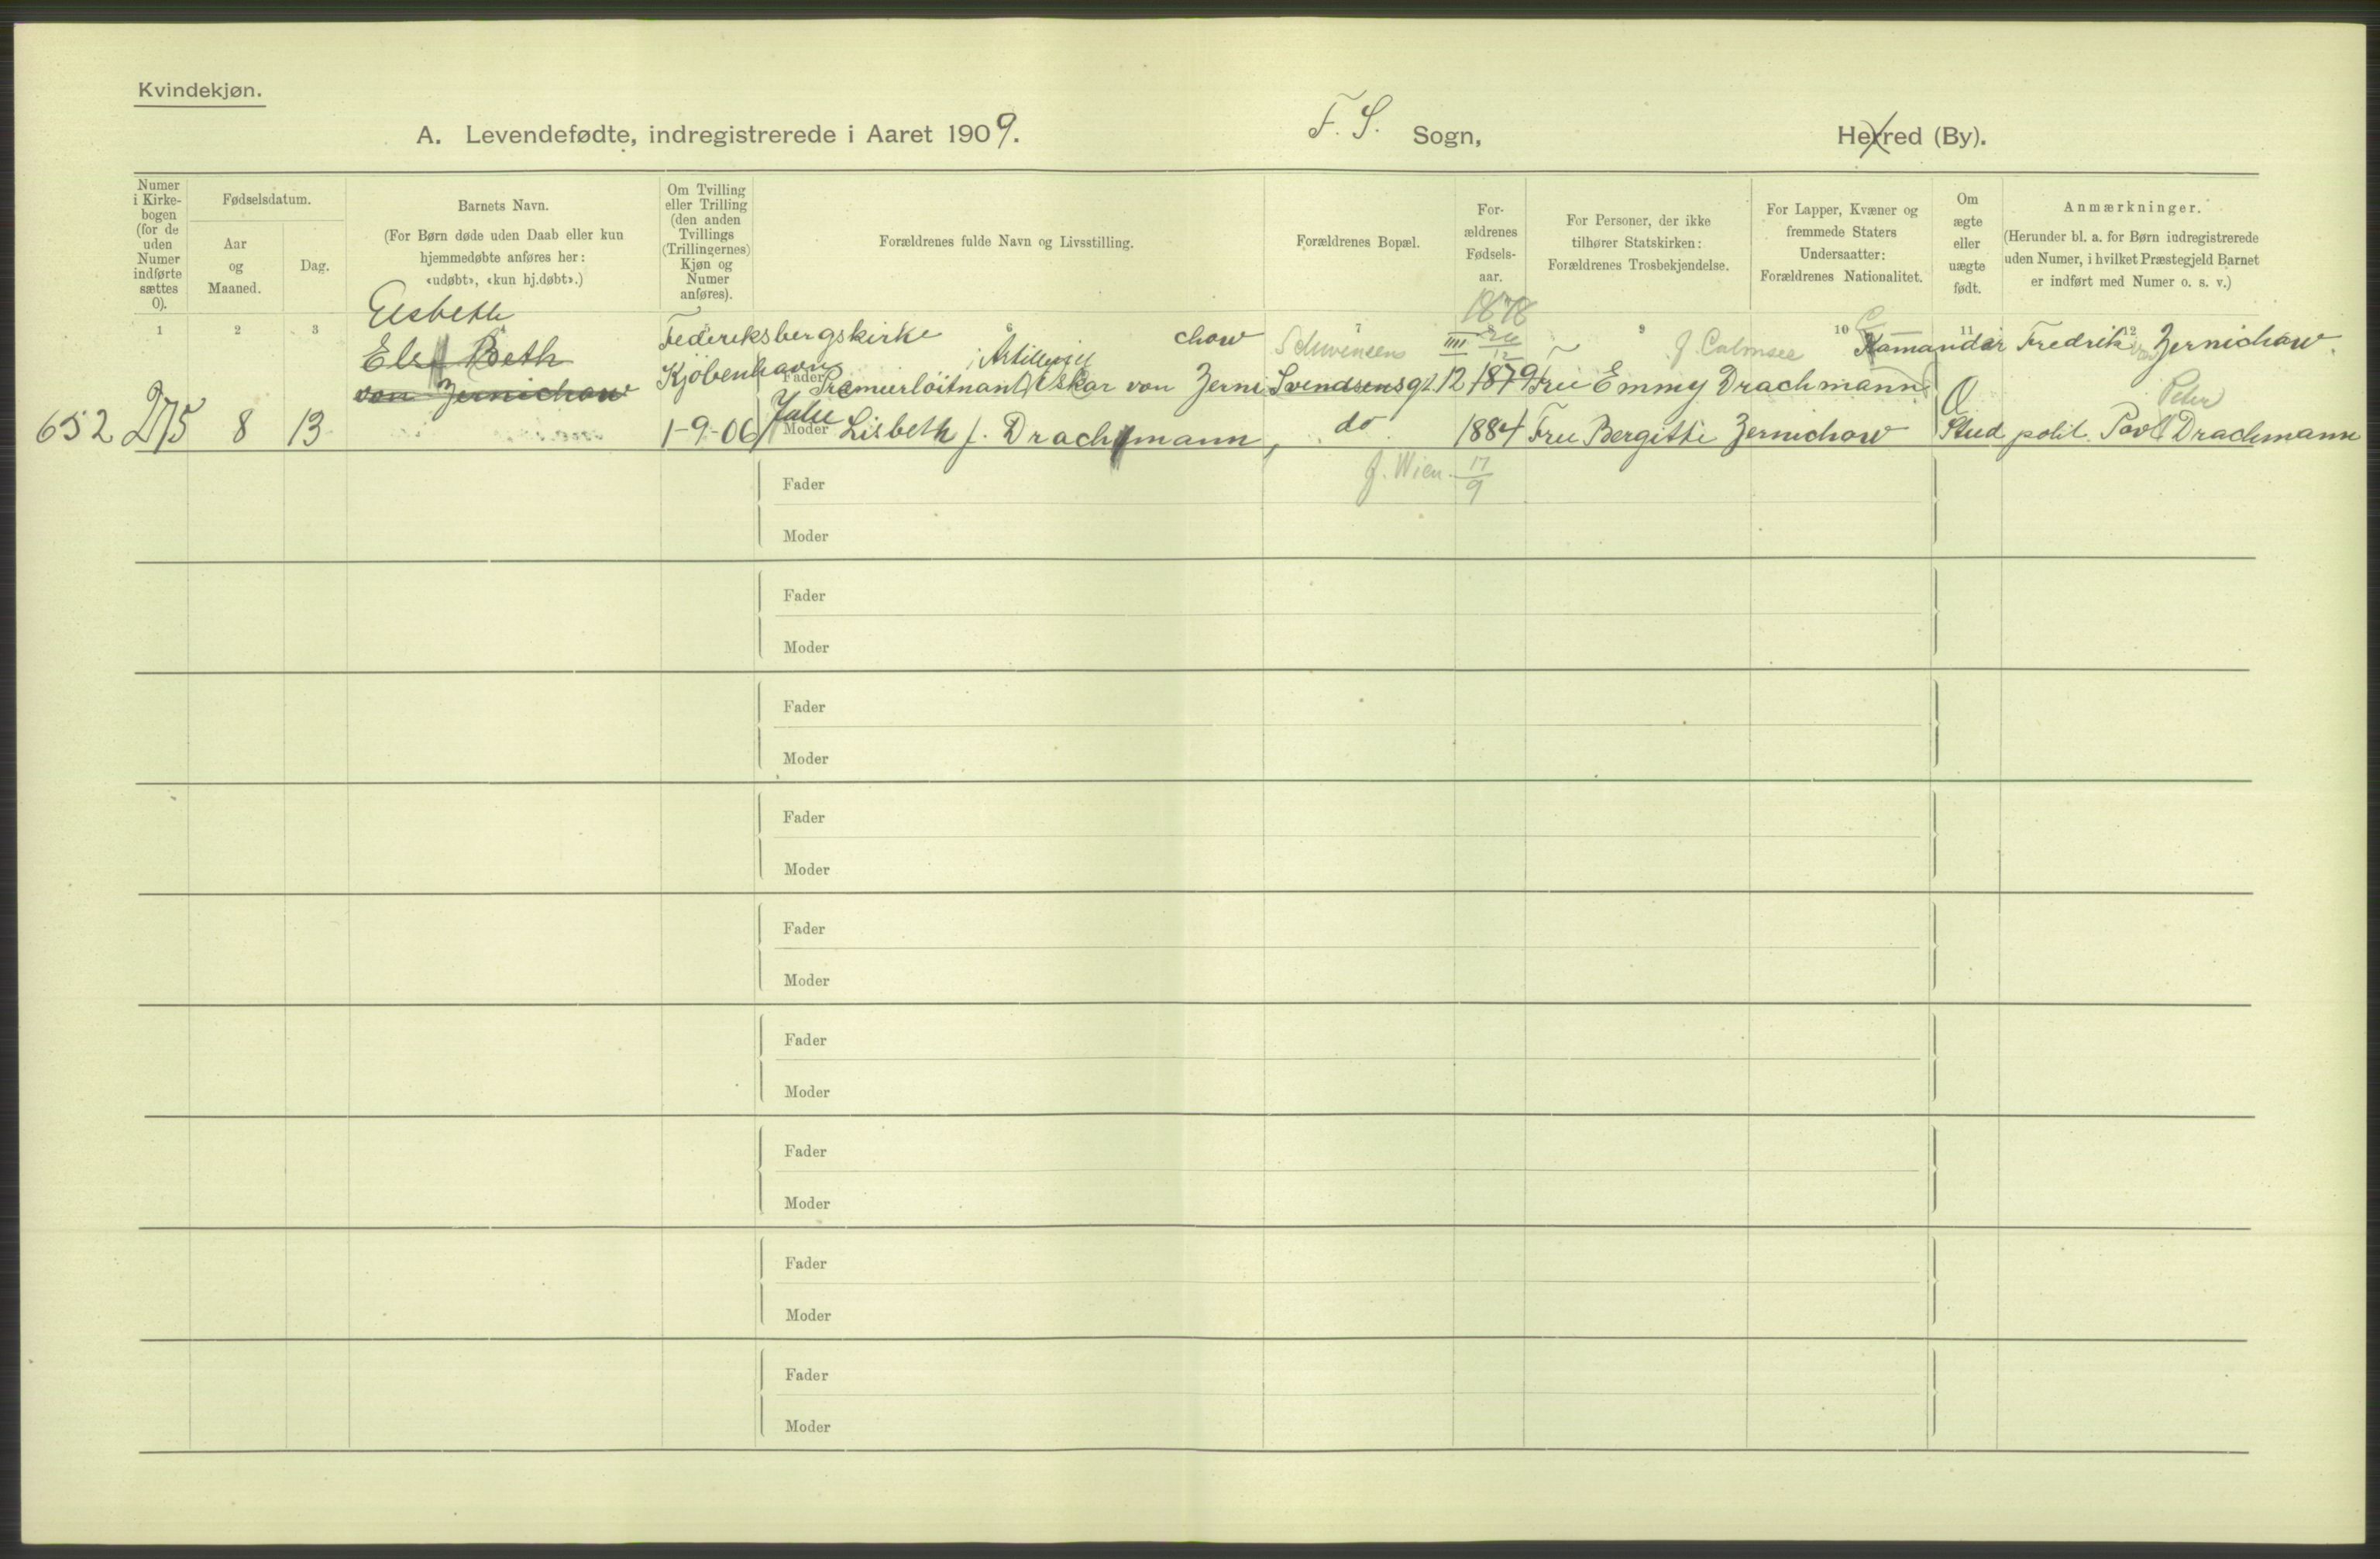 Kvindekjøn.
A. Levendefødte, indregistrerede i Aaret 1909. F. S. Sogn, Herred (By).
Numer i Kirke-bogen (for de uden Numer indførte sættes 0).
Fødselsdatum.
Aar og Maaned.
Dag.
Barnets Navn.
(For Børn døde uden Daab eller kun hjemmedøbte anføres her: «udøbt», «kun hj.døbt».)
Om Tvilling eller Trilling (den anden Tvillings (Trillingernes) Kjøn og Numer anføres).
Forældrenes fulde Navn og Livsstilling.
Forældrenes Bopæl.
For-ældrenes Fødsels-aar.
For Personer, der ikke tilhører Statskirken: Forældrenes Trosbekjendelse.
For Lapper, Kvæner og fremmede Staters Undersaatter: Forældrenes Nationalitet.
Om ægte eller uægte født.
Anmærkninger.
(Herunder bl. a. for Børn indregistrerede uden Numer, i hvilket Præstegjeld Barnet er indført med Numer o. s. v.)
1 2 3 6 7 8 9 10 11 12
Elsbeth
Else Beth
von Zernichow
652 275 8 13
Federiksbergskirke
Kjöbenhavn
1-9-06
i Artilleriet chow
Fader Premierlöitnant Oskar von Zerni
Julie
Moder Lisbeth f. Drachmann,
Schwensens
Svendsensgt. 12
do
1878
1879
1884
f. Wien 17/9
Kamandör Fredrik von Zernichow.
Frue Emmy Drachmann
Frue Bergitte Zernichow
Peter
Stud polit. Povl Drachmann
Fader
Moder
Fader
Moder
Fader
Moder
Fader
Moder
Fader
Moder
Fader
Moder
Fader
Moder
Fader
Moder
Fader
Moder